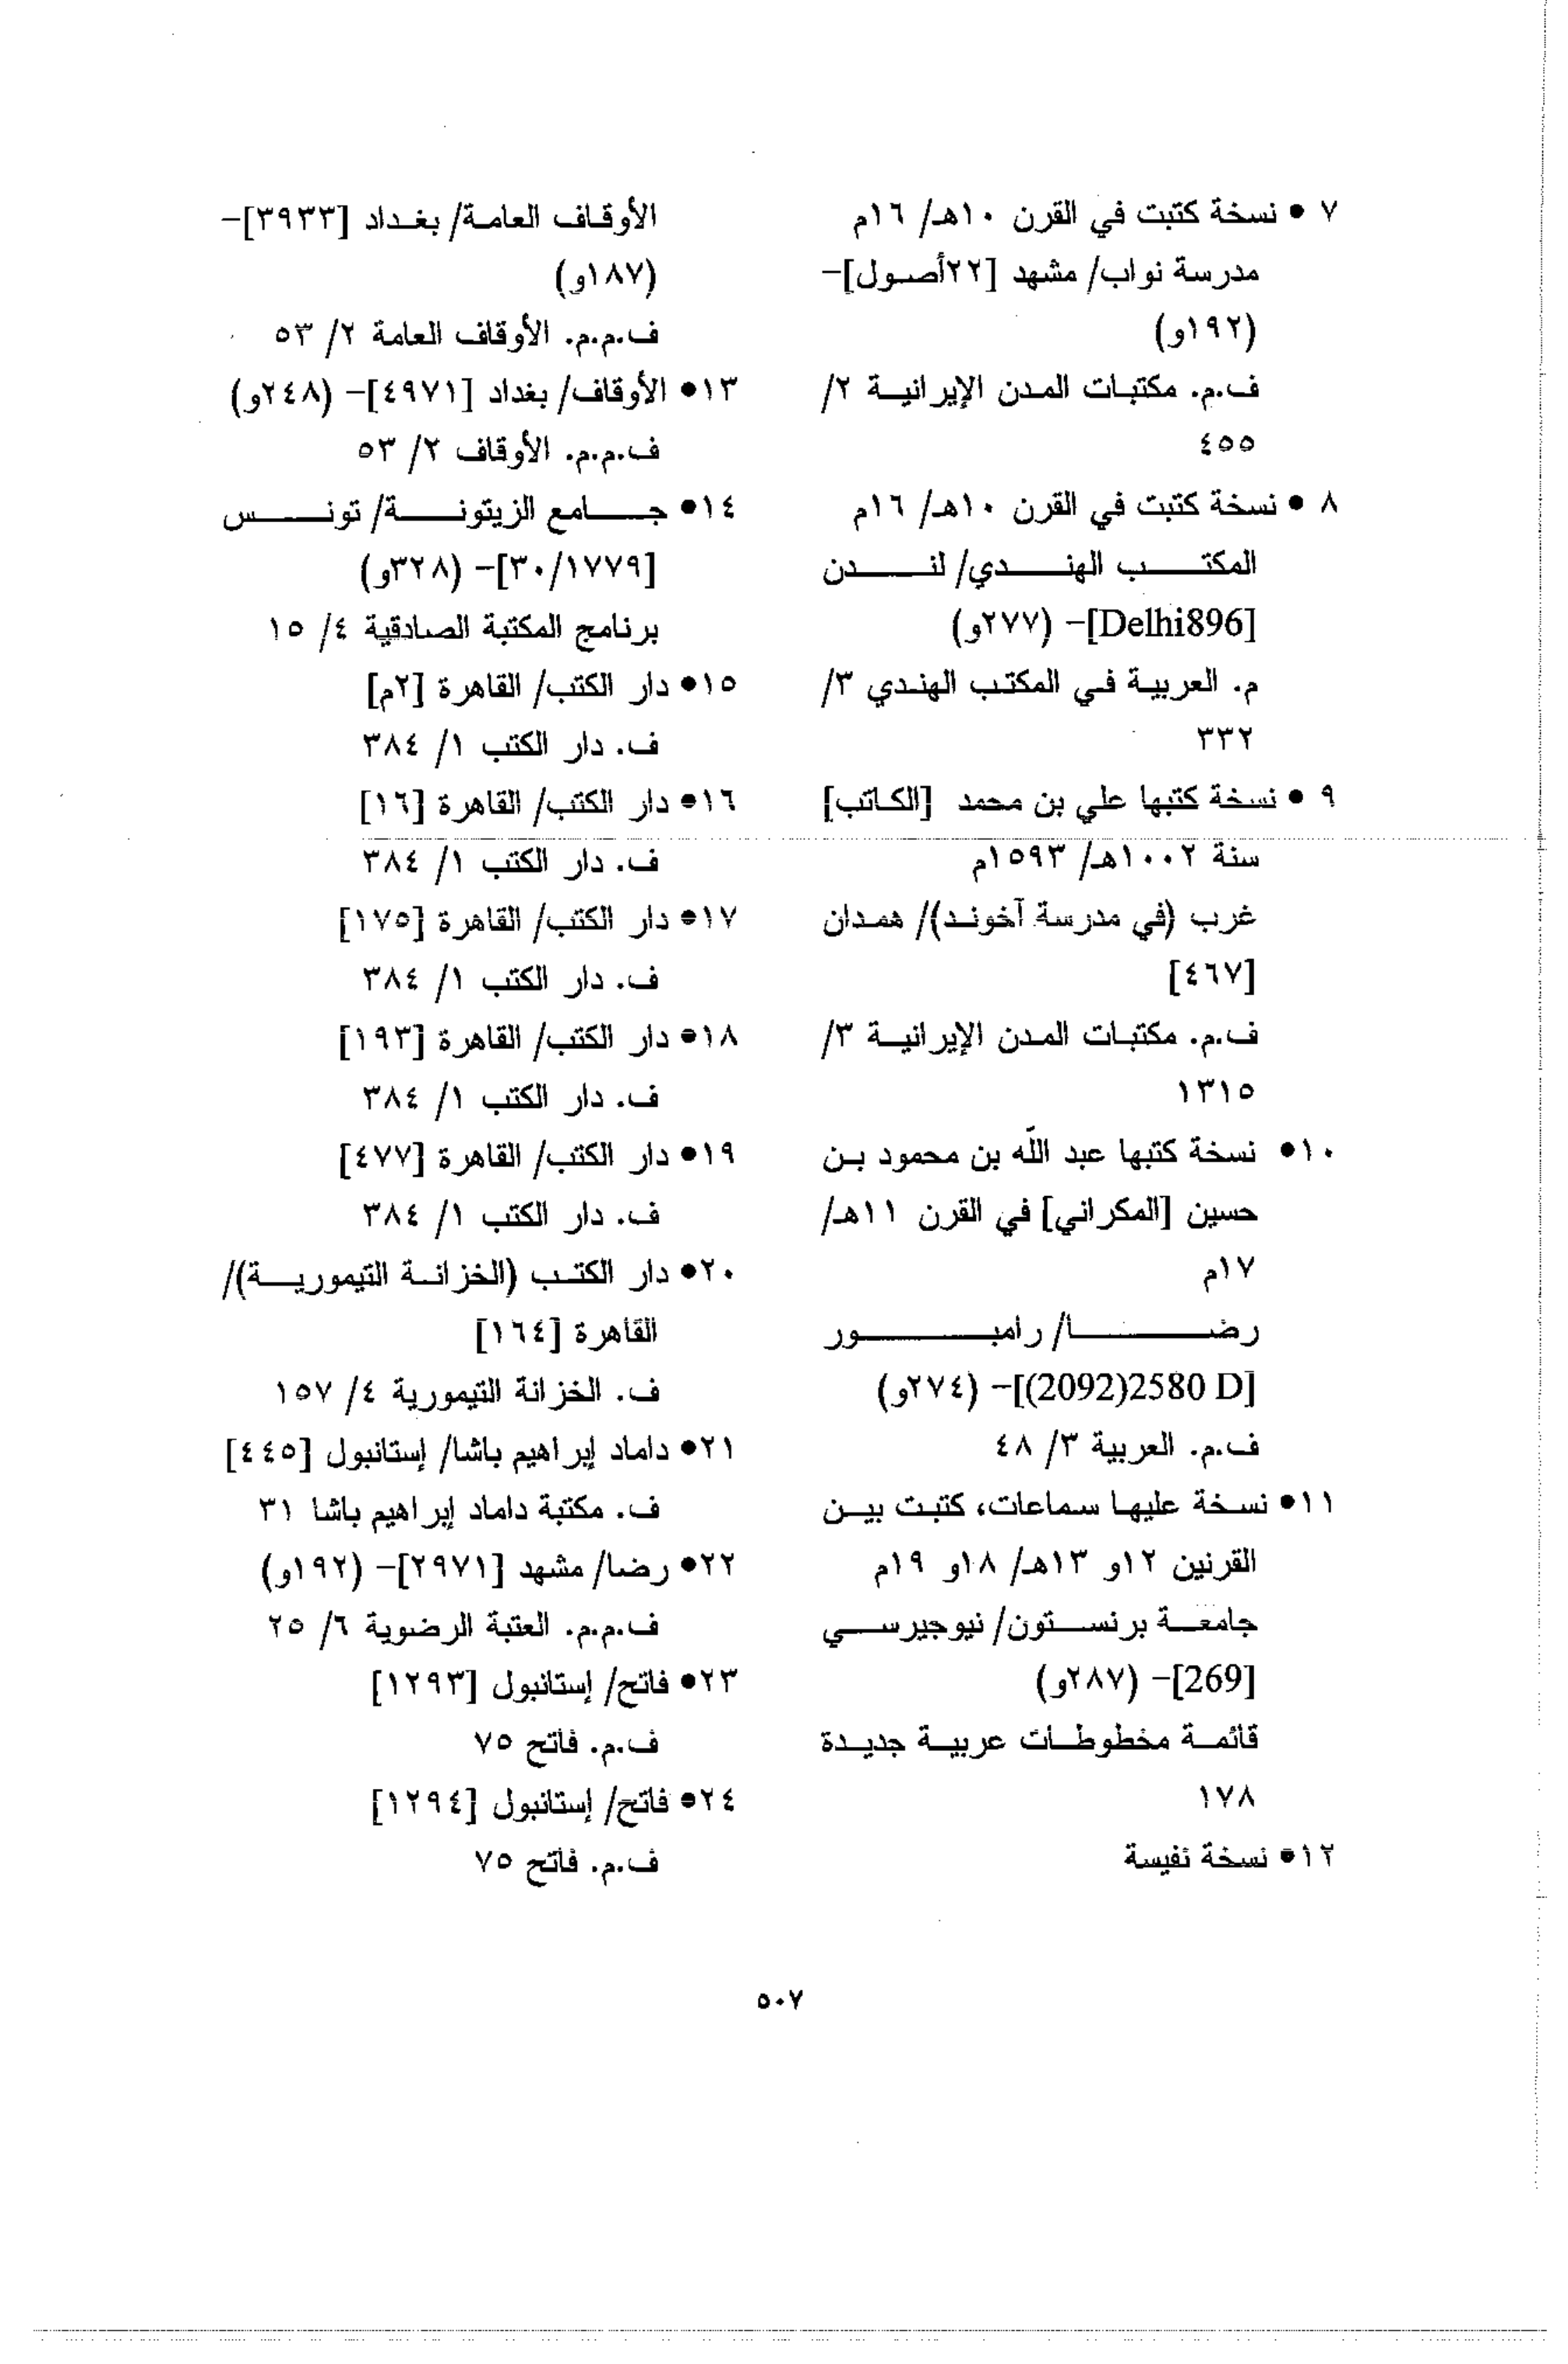 ٧ • نسخة كتبت في القرن ١٠هـ/ ١٦م
مدرسة نواب/ مشهد [٢٢أصول]–
(١٩٢و)
ف.م. مكتبات المدن الإيرانية ٢/
٤٥٥
٨ • نسخة كتبت في القرن ١٠هـ/ ١٦م
المكتب الهندي/ لندن
[Delhi896]– (٢٧٧و)
م. العربية في المكتب الهندي ٣/
٣٣٢
٩ • نسخة كتبها علي بن محمد [الكاتب]
سنة ١٠٠٢هـ/ ١٥٩٣م
غرب (في مدرسة آخوند)/ همدان
[٤٦٧]
ف.م. مكتبات المدن الإيرانية ٣/
١٣١٥
١٠• نسخة كتبها عبد الله بن محمود بن
حسين [المكراني] في القرن ١١هـ/
١٧م
رضا/ رامبور
[2580 D(2092)]– (٢٧٤و)
ف.م. العربية ٣/ ٤٨
١١• نسخة عليها سماعات، كتبت بين
القرنين ١٢و ١٣هـ/ ١٨و ١٩م
جامعة برنستون/ نيوجيرسي
[269]– (٢٨٧و)
قائمة مخطوطات عربية جديدة
١٧٨
١٢• نسخة نفيسة
الأوقاف العامة/ بغداد [٣٩٣٣]–
(١٨٧و)
ف.م.م. الأوقاف العامة ٢/ ٥٣
١٣• الأوقاف/ بغداد [٤٩٧١]– (٢٤٨و)
ف.م.م. الأوقاف ٢/ ٥٣
١٤• جامع الزيتونة/ تونس
[٣٠/١٧٧٩]– (٣٢٨و)
برنامج المكتبة الصادقية ٤/ ١٥
١٥• دار الكتب/ القاهرة [٢م]
ف. دار الكتب ١/ ٣٨٤
١٦• دار الكتب/ القاهرة [١٦]
ف. دار الكتب ١/ ٣٨٤
١٧• دار الكتب/ القاهرة [١٧٥]
ف. دار الكتب ١/ ٣٨٤
١٨• دار الكتب/ القاهرة [١٩٣]
ف. دار الكتب ١/ ٣٨٤
١٩• دار الكتب/ القاهرة [٤٧٧]
ف. دار الكتب ١/ ٣٨٤
٢٠• دار الكتب (الخزانة التيمورية)/
القاهرة [١٦٤]
ف. الخزانة التيمورية ٤/ ١٥٧
٢١• داماد إبراهيم باشا/ إستانبول [٤٤٥]
ف. مكتبة داماد إبراهيم باشا ٣١
٢٢• رضا/ مشهد [٢٩٧١]– (١٩٢و)
ف.م.م. العتبة الرضوية ٦/ ٢٥
٢٣• فاتح/ إستانبول [١٢٩٣]
ف.م. فاتح ٧٥
٢٤• فاتح/ إستانبول [١٢٩٤]
ف.م. فاتح ٧٥
٥٠٧